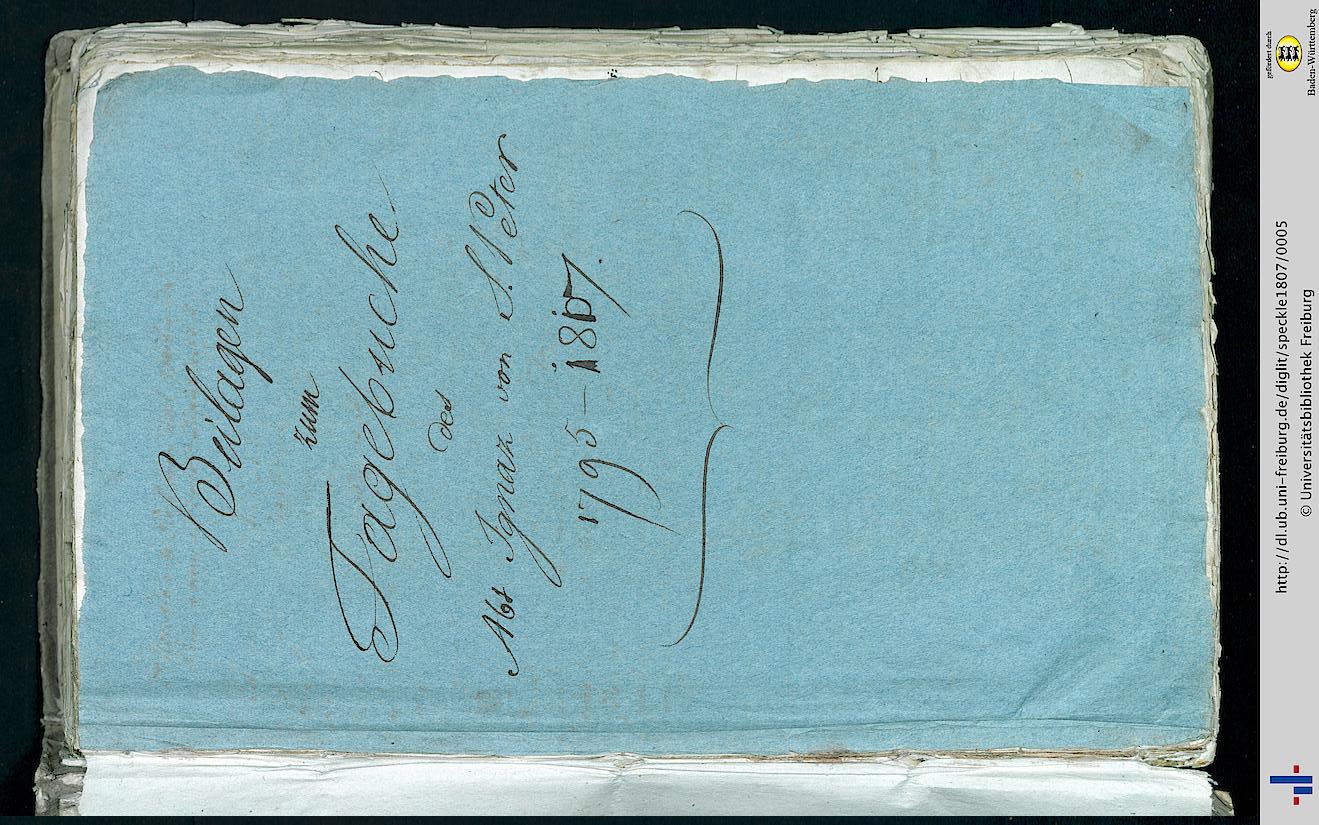 Beilagen
zum
Tagebuche
des
Abt Ignaz von S. Peter
1795–1807.
http://dl.ub.uni-freiburg.de/diglit/speckle1807/0005
© Universitätsbibliothek Freiburg
gefördert durch
Baden-Württemberg